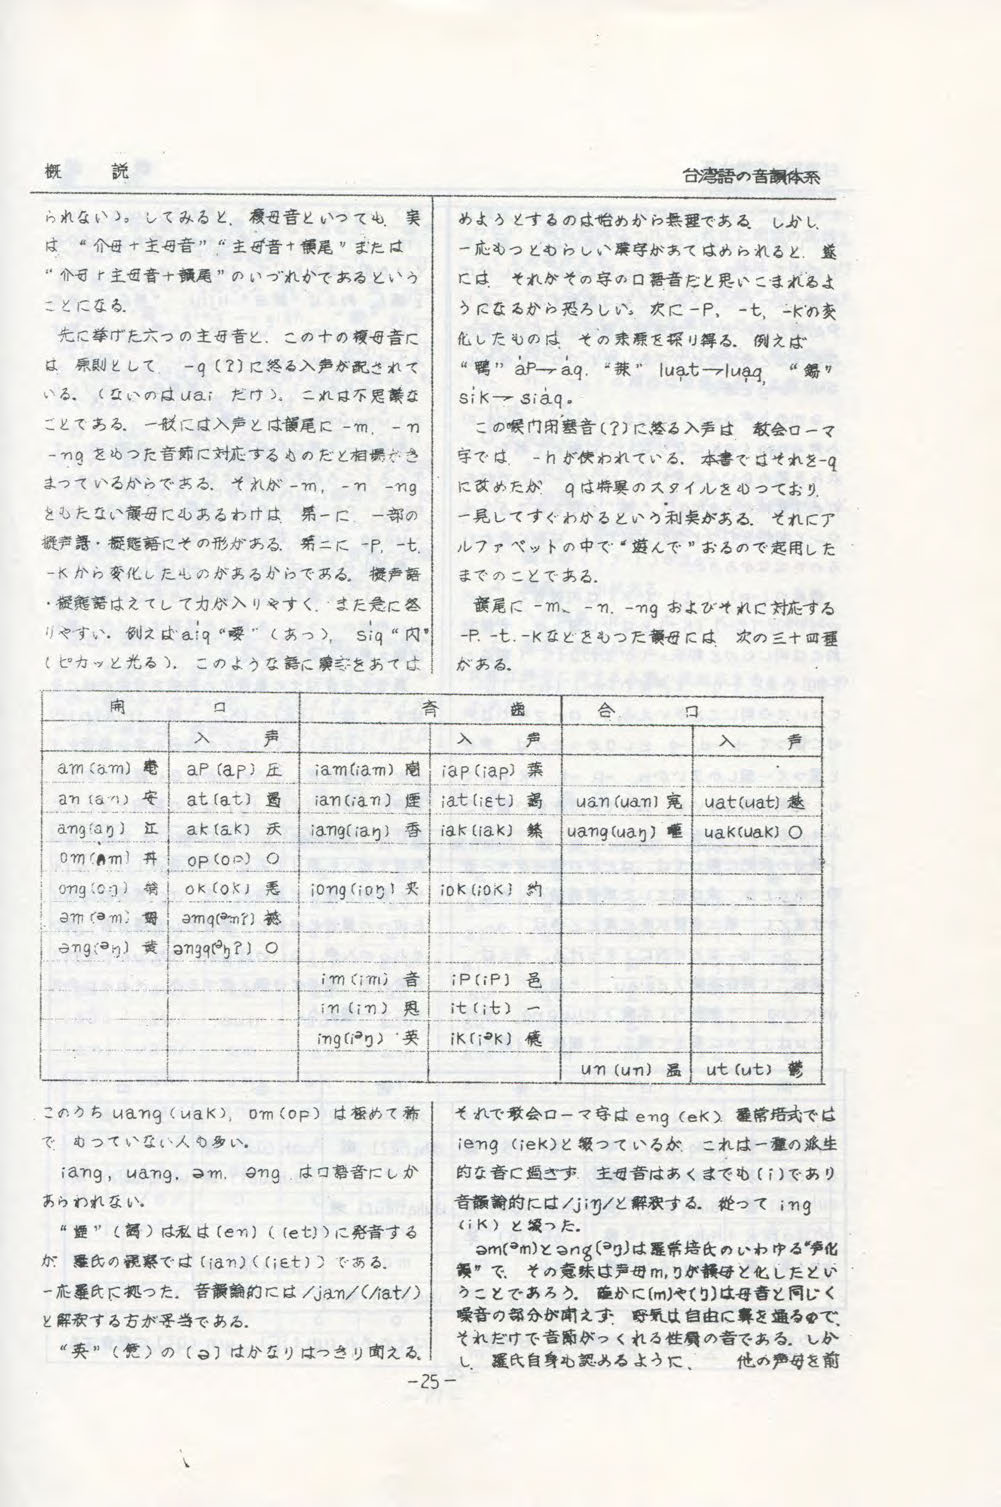 概　説
台湾語の音韻体系
られない)。してみると、複母音といっても、実
は "介母+主母音" "主母音+韻尾" または
"介母+主母音+韻尾"のいづれかであるという
ことになる。
先に挙げた六つの主母音と、この十の複母音に
は 原則として -q (?)に終る入声が配されて
いる。(ないのはuai だけ)。これは不思議な
ことである。一般には入声とは韻尾に -m, -n
-ng をもつた音節に対応するものだと相場がき
まっているからである。それが -m, -n -ng
をもたない韻母にもあるわけは 第一に 一部の
擬声語・擬態語にその形がある。第二に -p, -t,
-k から変化したものがあるからである。擬声語
・擬態語はえてして力が入りやすく、また急に終
りやすい。例えば aiq "噯" (あっ), siq "閃"
(ピカッと光る)。このような語に漢字をあては
めようとするのは始めから無理である。しかし、
一応もっともらしい漢字があてはめられると、遂
には それがその字の口語音だと思いこまれるよ
うになるから恐ろしい。次に -p, -t, -kの変
化したものは その来源を探り得る。例えば
"鴨" ap→aq, "辣" luat→luaq, "錫"
sik→siaq。
この喉門閉塞音(?)に終る入声は 教会ローマ
字では -h が使われている。本書ではそれを-q
に改めたが qは特異のスタイルをもっており、
一見してすぐわかるという利点がある。それにア
ルファベットの中で"遊んで"おるので起用した
までのことである。
韻尾に -m、-n, -ng およびそれに対応する
-p. -t. -k などをもつた韻母には 次の三十四種
がある。
開　口　斉　歯　合　口
入　声　入　声　入　声
am (am) 庵 ap (ap) 圧 iam (iam) 閹 iap (iap) 葉
an (an) 安 at (at) 遏 ian (ian) 煙 iat (iɛt) 謁 uan (uan) 冤 uat (uat) 越
ang (aŋ) 江 ak (ak) 沃 iang (iaŋ) 香 iak (iak) uang (uaŋ) uak (uak) ○
om (ɔm) op (op) ○
ong (oŋ) ok (ok) 悪 iong (ioŋ) iok (iok) 約
əm (əm) 姆 əmq (əm?)
əng (əŋ) 黄 əngq (əŋ?) ○
im (im) 音 ip (ip) 邑
in (in) 恩 it (it) 一
ing (iəŋ) 英 ik (iək) 億
un (un) 温 ut (ut) 鬱
このうち uang (uak), om (op) は極めて稀
で もっていない人も多い。
iang, uang, əm, əng は口語音にしか
あらわれない。
"煙" (謁) は私は (en) ((et)) に発音する
が 羅氏の観察では (ian) ((iɛt)) である。
一応羅氏に拠った。音韻論的には /jan/ (/iat/)
と解釈する方が妥当である。
"英" (憶) の (ə) はかなりはっきり聞える。
それで教会ローマ字は eng (ek) 羅常培式では
ieng (iek)と綴っているが、これは一種の派生
的な音に過ぎず 主母音はあくまでも (i) であり
音韻論的には /jiŋ/と解釈する。従って ing
(ik) と綴った。
əm(əm)とəng(əŋ)は羅常培氏のいわゆる"声化
韻" で、その意味は声母m,ŋが韻母と化したとい
うことであろう。確かに(m)や(ŋ)は母音と同じく
噪音の部分が聞えず 呼気は自由に鼻を通るので、
それだけで音節がつくれる性質の音である。しか
し、羅氏自身も認めるように、 他の声母を前
-25-